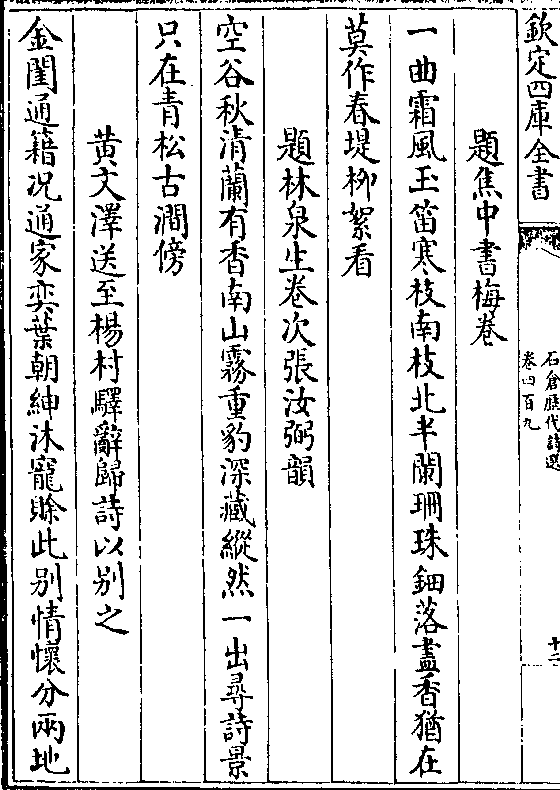 欽定四庫全書
石倉歷代詩選
卷四百九
十二
題焦中書梅卷
一曲霜風玉笛寒枝南枝北半闌珊珠鈿落盡香猶在
莫作春堤栁絮看
題林泉生卷次張汝弼韻
空谷秋清蘭有香南山霧重豹深藏縱然一出尋詩景
只在青松古澗傍
黄文澤送至楊村驛辭歸詩以别之
金閨通籍况通家奕葉朝紳沐寵賖此别情懷分兩地